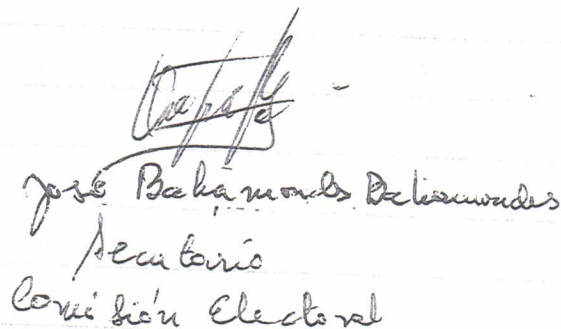 José Bahamondes Bahamondes
Secretario
Comisión Electoral